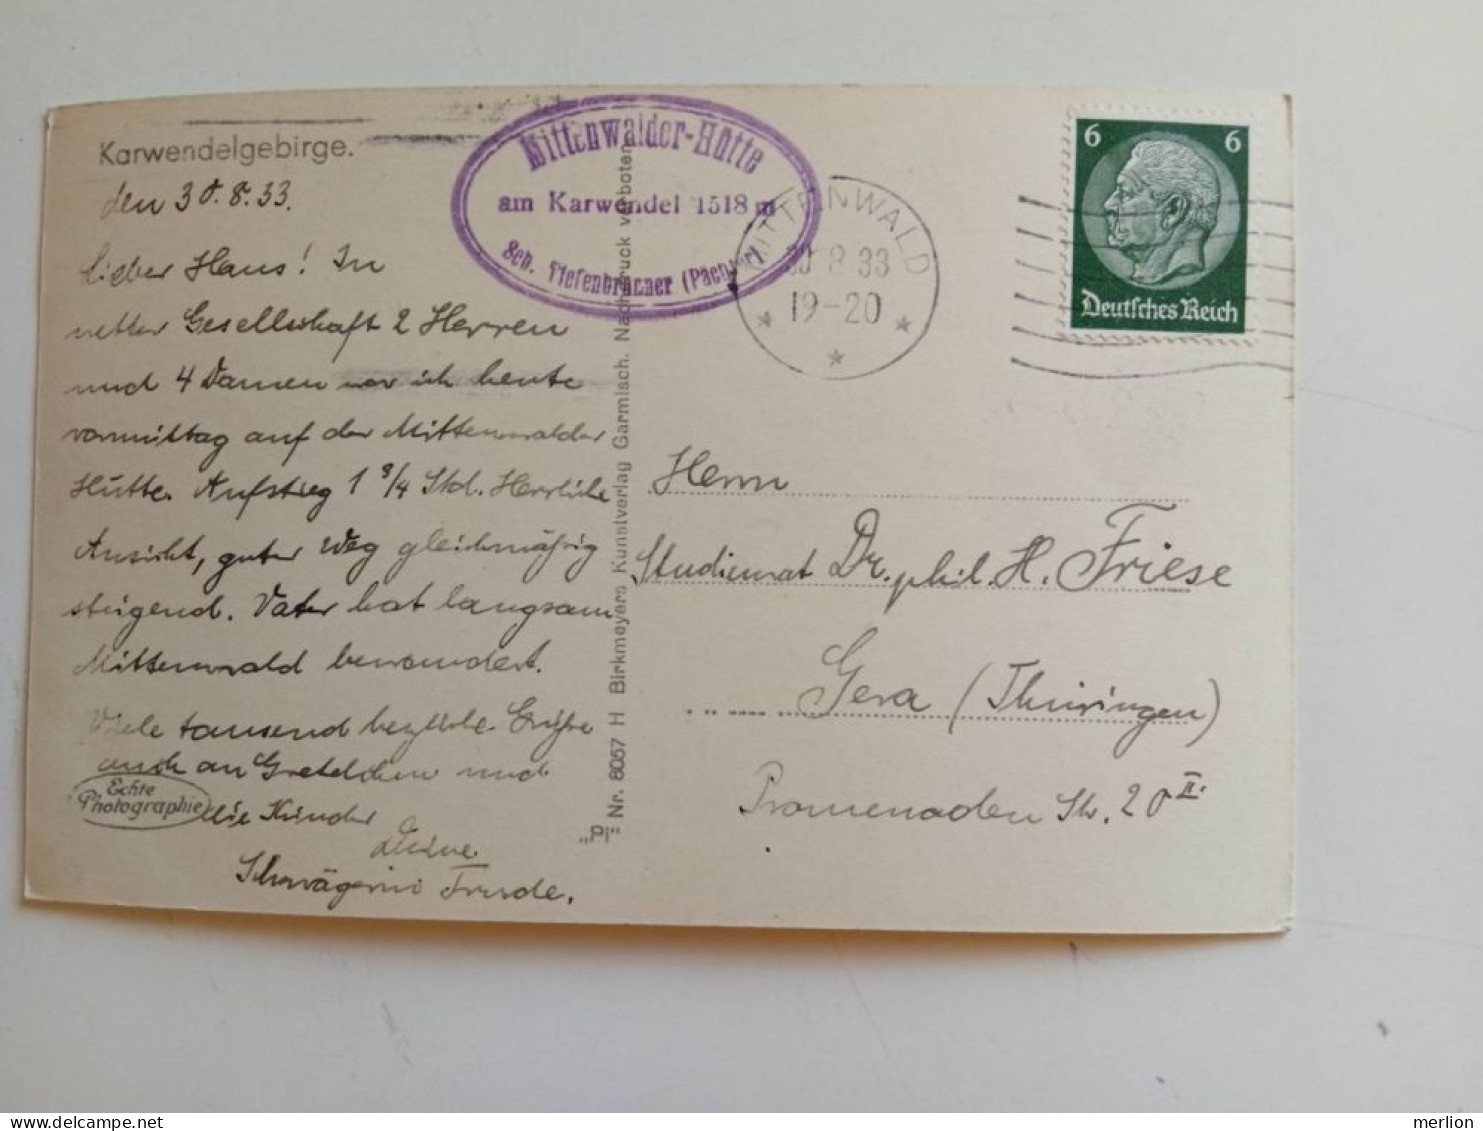 Karwendelgebirge.
den 30.8.33.
Lieber Hans! In
netter Gesellschaft 2 Herren
und 4 Damen war ich heute
vormittag auf der Mittenwalder
Hütte. Aufstieg 1 3/4 Std. Herrliche
Ansicht, guter Weg gleichmäßig
steigend. Vater hat langsam
Mittenwald bewundert.
Viele tausend herzliche Grüße
auch an Gretelchen und
die Kinder
Deine
Schwägerin Trude.
Echte
Photographie
Mittenwalder-Hütte
am Karwendel 1518 m
Seb. Tiefenbrunner (Pächter)
"Pi" Nr. 8057 H Birkmeyers Kunstverlag Garmisch. Nachdruck verboten
MITTENWALD
30 8 33
19-20
6 6
Deutsches Reich
Herrn
Studienrat Dr. phil. H. Friese
Gera (Thüringen)
Promenaden Str. 20 II.
merlion